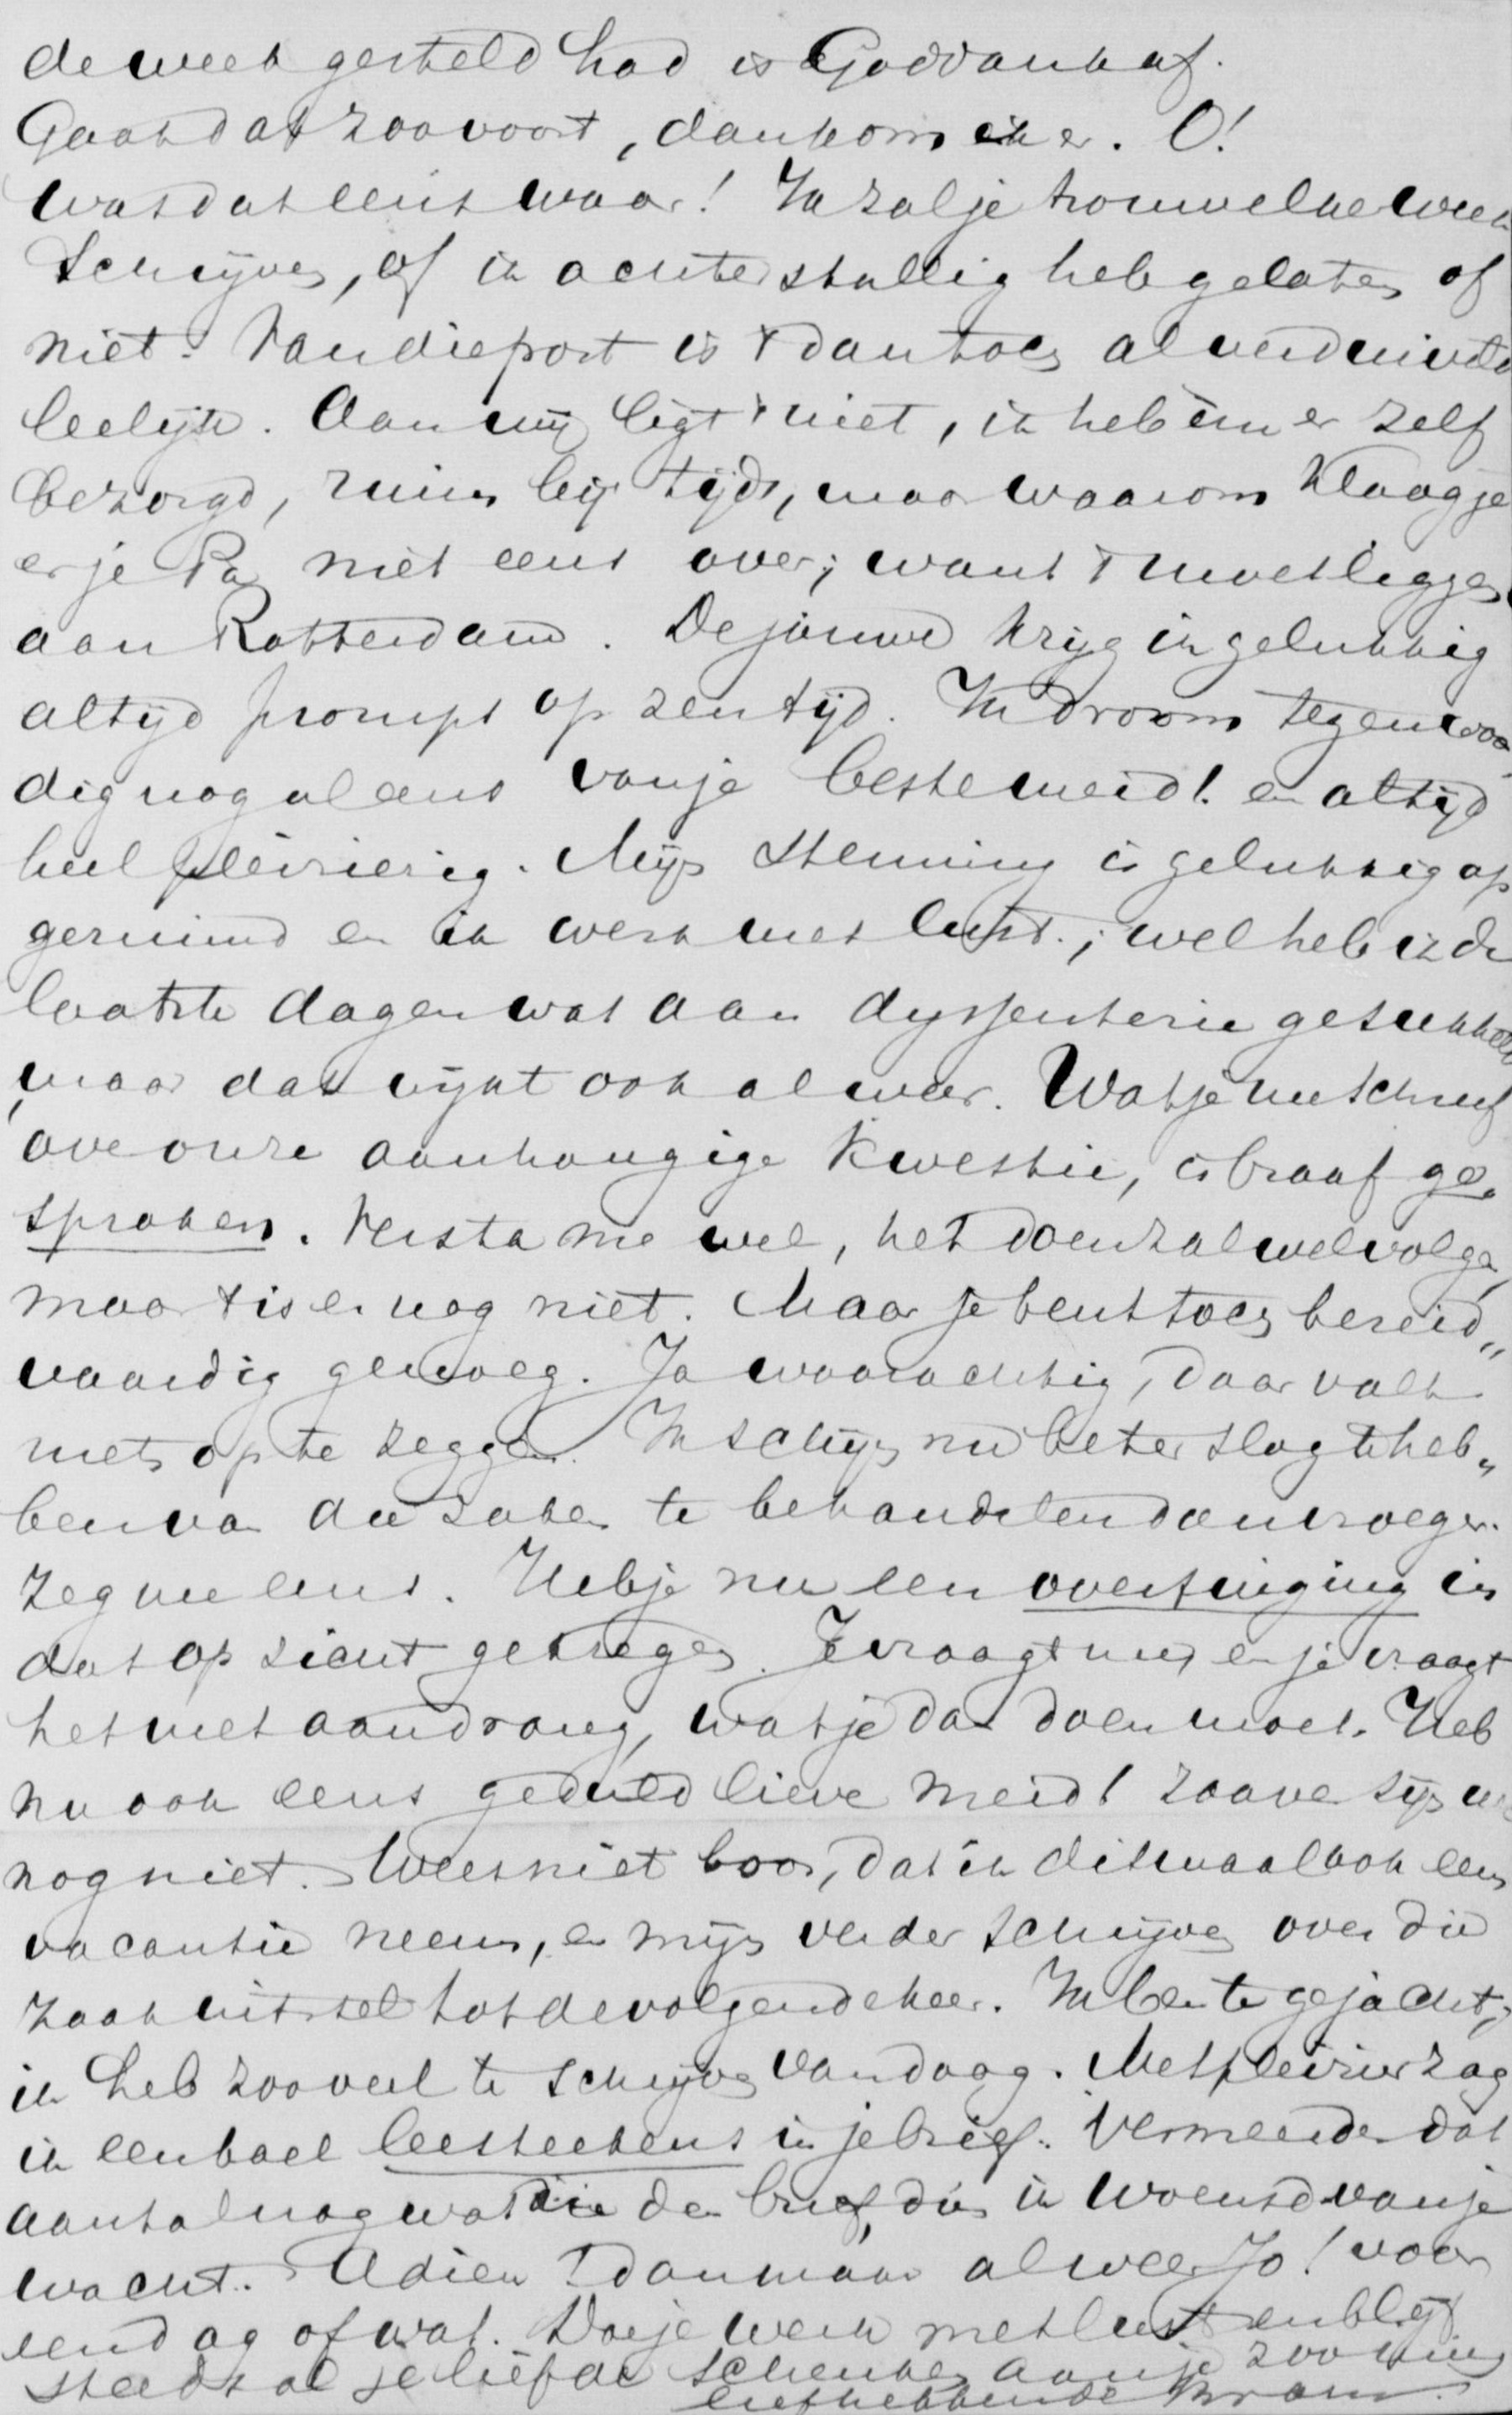 de week gesteld had is Goddank af.
Gaat dat zoo voort, dan kom ik er. O!
was dat eens waar! Ik zal je trouw elke week
schrijven, of ik achterstallig heb gelaten of
niet. Van die post is 't dan toch al verduiveld
leelijk. Aan mij ligt 't niet, ik heb 'em er zelf
bezorgd, ruim bij tijds, maar waarom klaag je
er je Pa niet eens over; want 't moet liggen
aan Rotterdam. De jouwe krijg ik gelukkig
altijd prompt op zen tijd. Ik droom tegenwoor
dig nog al eens van je beste meid! en altijd
heel pleizierig. Mijn stemming is gelukkig op
geruimd en ik werk met lust.; wel heb ik de
laatste dagen wat aan dyssenterie gesukkeld
maar dat wijkt ook al weer. Wat je me schreef
over onze aanhangige kwestie, is braaf ge„
sproken. Versta me wel, het doen zal wel volgen,
maar 't is er nog niet. Maar je bent toch bereid„
vaardig genoeg. Ja waarachtig, daar valt
niets op te zeggen. Ik schijn nu beter slag te heb„
ben van die zaken te behandelen dan vroeger.
Zeg me eens. Heb je nu een overtuiging in
dat opzicht gekregen. Je vraagt mij en je vraagt
het met aandrang, wat je dan doen moet. Heb
nu ook eens geduld lieve meid! zoover zijn we
nog niet. Wees niet boos, dat ik ditmaal ook eens
vacantie neem, en mijn verder schrijven over die
zaak uitstel tot de volgende keer. Ik ben te gejacht;
ik heb zooveel te schrijven vandaag. Met pleizier zag
ik een boel leesteekens in je brief. Vermeerder dat
aantal nog wat in den brief, dien ik woensd. van je
wacht. Adieu! dan maar alweer Jo! voor
een dag of wat. Doe je werk met lust en blijf
steeds al je liefde schenken aan je zoo innig
liefhebbende Bram.